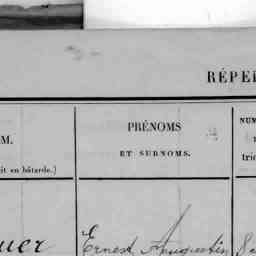 RÉPE
PRÉNOMS
ET SURNOMS.
NUM
tri
OM.
it en bâtarde.)
uer Ernest Augustin